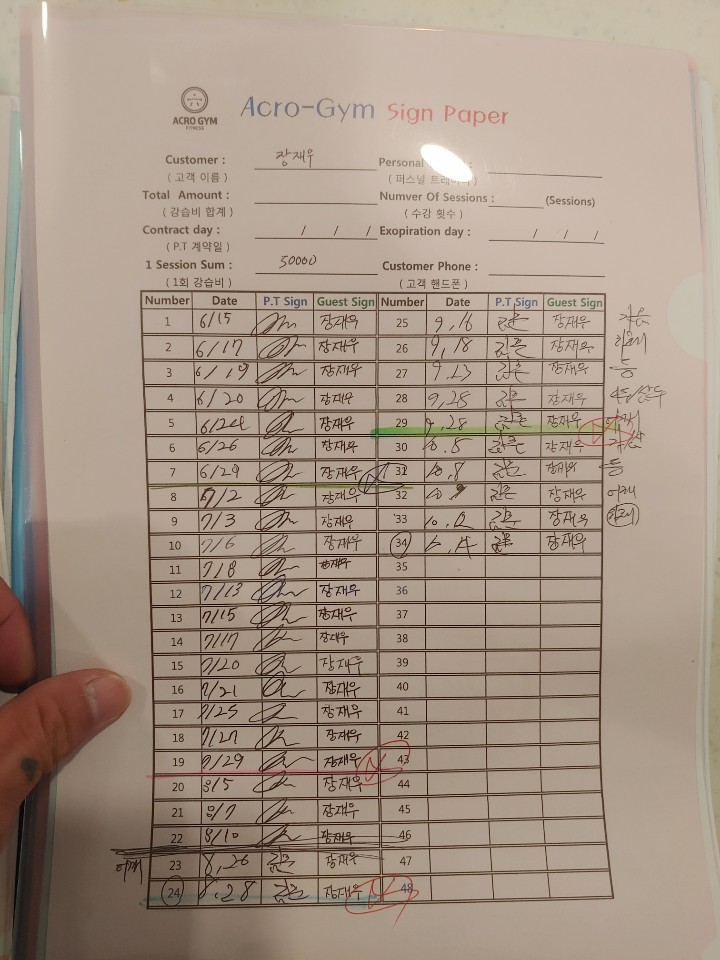 ACRO GYM
FITNESS
Acro-Gym Sign Paper
Customer : 장재우 Personal :
( 고객 이름 ) ( 퍼스널 트레이너 )
Total Amount : Numver Of Sessions : (Sessions)
( 강습비 합계 ) ( 수강 횟수 )
Contract day : / / / Exopiration day : / / /
( P.T 계약일 )
1 Session Sum : 50000 Customer Phone :
( 1회 강습비 ) ( 고객 핸드폰 )
Number Date P.T Sign Guest Sign Number Date P.T Sign Guest Sign
1 6/15 장재우 25 9,16 장재우
2 6/17 장재우 26 9,18 장재우
3 6/19 장재우 27 9.23 장재우
4 6/20 장재우 28 9,28 장재우
5 6/24 장재우 29 9,28 장재우
6 6/26 장재우 30 10.5 장재우
7 6/29 장재우 31 10,8 장재우 등
8 7/2 장재우 32 장재우 어깨
9 7/3 장재우 33 장재우
10 7/6 장재우 34 장재우
11 7/8 장재우 35
12 7/13 장재우 36
13 7/15 장재우 37
14 7/17 장재우 38
15 7/20 장재우 39
16 7/21 장재우 40
17 7/25 장재우 41
18 7/27 장재우 42
19 7/29 장재우 43
20 8/5 장재우 44
21 8/7 장재우 45
22 8/10 장재우 46
어깨 23 8,26 장재우 47
24 8.28 장재우 48